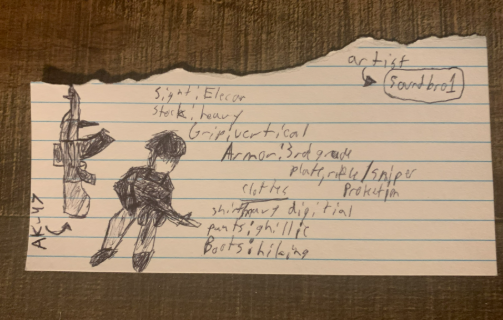 artist
Soundbro1
Sight: Elecor
Stock: heavy
Grip: vertical
Armor: 3rd grade
plate, rifle/sniper
Protection
clothes
shirt: navy digitial
pants: ghillie
Boots: hiking
AK-47